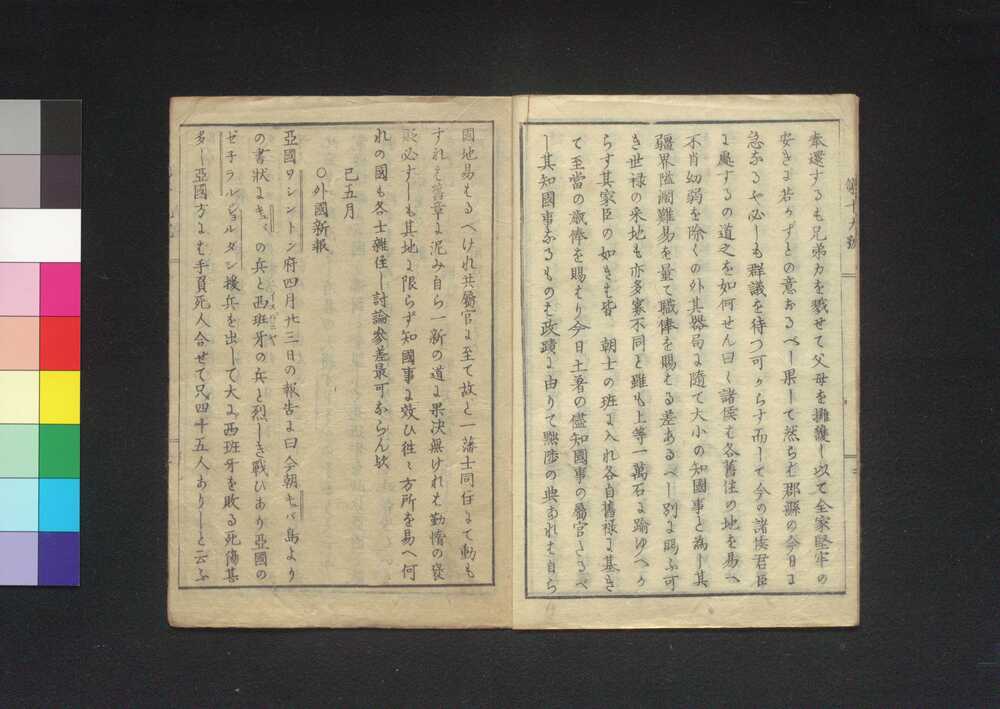 奉還するも兄弟力を戮せて父母を擁護し以て全家堅牢の
安きに若かずとの意なるべし果して然らは郡縣の今日に
急なるや必しも群議を待つ可からす而して今の諸侯君臣
に處するの道之を如何せん曰く諸侯は各舊住の地を易へ
不肖幼弱を除くの外其器局に隨て大小の知國事と為し其
疆界隘濶難易を量て職俸を賜はる差あるべし別に賜ふ可
き世禄の釆地も亦多寡不同と雖も上等一萬石に踰ゆへか
らす其家臣の如きは皆 朝士の班に入れ各自舊禄に基き
て至當の俸を賜はり今日土著の儘知國事の屬官たるべ
し其知國事なるものは政蹟に由りて黜陟の典あれは自ら
因地易はるへけれ共屬官に至て故と一藩士同住にて動も
すれは舊章に泥み自ら一新の道に果决無けれは勤惰の
必すしも其地に限らず知國事に效ひ往々方所を易へ何
れの國も各士雜住し討論參差最可ならん歟
己五月
○外國新報
亞國ワシントン府四月廿三日の報告に曰今朝キバ島より
の書状にキュバの兵と西班牙の兵と烈しき戰ひあり亞國の
ゼネラルジョルダン援兵を出して大に西班牙を敗る死傷甚
多し亞國方にも手負死人合せて凡四十五人ありしと云ふ